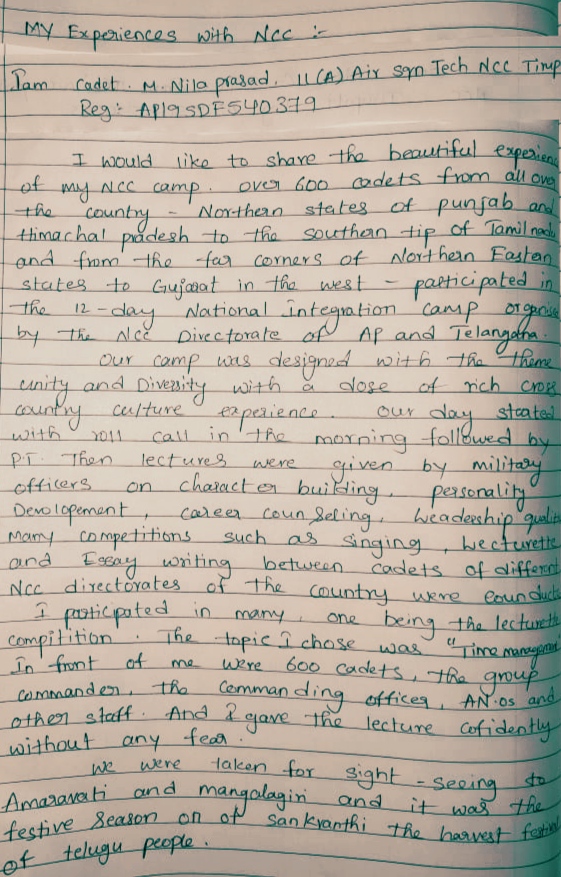 MY Experiences with NCC :-
I am cadet. M. Nila prasad. 11(A) Air sqn Tech NCC
Reg: AP19SDF540379
I would like to share the beautiful experienc
of my NCC camp. over 600 cadets from all over
the country - Northern states of punjab and
Himachal pradesh to the southern tip of Tamil nadu
and from the far corners of Northern Eastern
states to Gujarat in the west - participated in
the 12-day National Integration camp organise
by the NCC Directorate of AP and Telangana.
Our camp was designed with the theme
unity and Diversity with a dose of rich cross
country culture experience. Our day started
with roll call in the morning followed by
P.T. Then lectures were given by military
officers on character building, personality
Development, career counseling, Leadership qualiti
Many competitions such as singing, Lecturette
and Essay writing between cadets of different
NCC directorates of the country were counducte
I participated in many, one being the lecturette
compitition. The topic I chose was "Time management
In front of me were 600 cadets, the group
commander, the commanding officer, AN.os and
other staff. And I gave the lecture cofidently
without any fear.
We were taken for sight-seeing to
Amaravati and mangalagiri and it was the
festive season on of sankranthi the harvest festival
of telugu people.